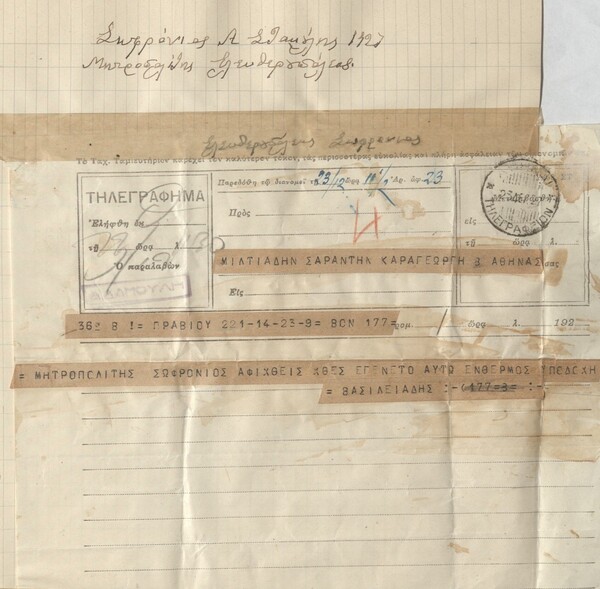 Σωφρόνιος Α Σταμούλης 1927
Μητροπολίτης Ελευθερουπόλεως
Το Ταχ. Ταμιευτήριον παρέχει τον καλύτερον τόκον, τας περισσοτέρας ευκολίας και πλήρη ασφάλειαν
ΤΗΛΕΓΡΑΦΗΜΑ
Ἐλήφθη ἐκ
τῇ ὥρᾳ λ.
Ὁ παραλαβών
Παρεδόθη τῷ διανομεῖ τῇ 23/12 ὥρ. 23
Πρὸς
ΜΙΛΤΙΑΔΗΝ ΣΑΡΑΝΤΗΝ ΚΑΡΑΓΕΩΡΓΗ 8 ΑΘΗΝΑΣ
σας
Εἰς
εἰς
τῇ ὥρᾳ λ.
ΤΗΛΕΓΡΑΦΕΙΟΝ
362 B != ΠΡΑΒΙΟΥ 221-14-23-9= ΒΟΝ 177=
ὥρᾳ λ. 192
= ΜΗΤΡΟΠΟΛΙΤΗΣ ΣΩΦΡΟΝΙΟΣ ΑΦΙΧΘΕΙΣ ΧΘΕΣ ΕΓΕΝΕΤΟ ΑΥΤΩ ΕΝΘΕΡΜΟΣ ΥΠΟΔΟΧΗ
= ΒΑΣΙΛΕΙΑΔΗΣ :-